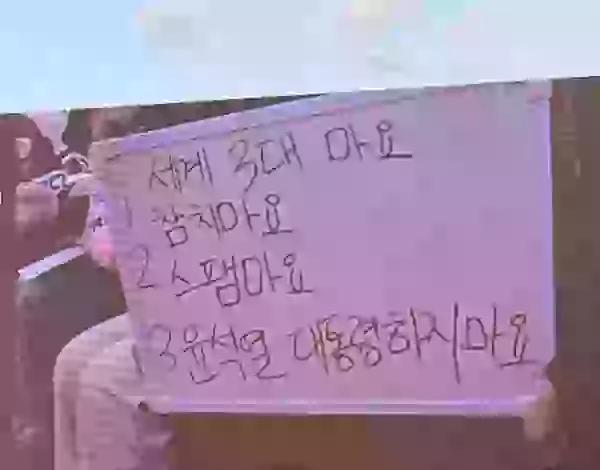 세계 3대 마요
1 참치마요
2 스팸마요
3 윤석열 대통령하지마요